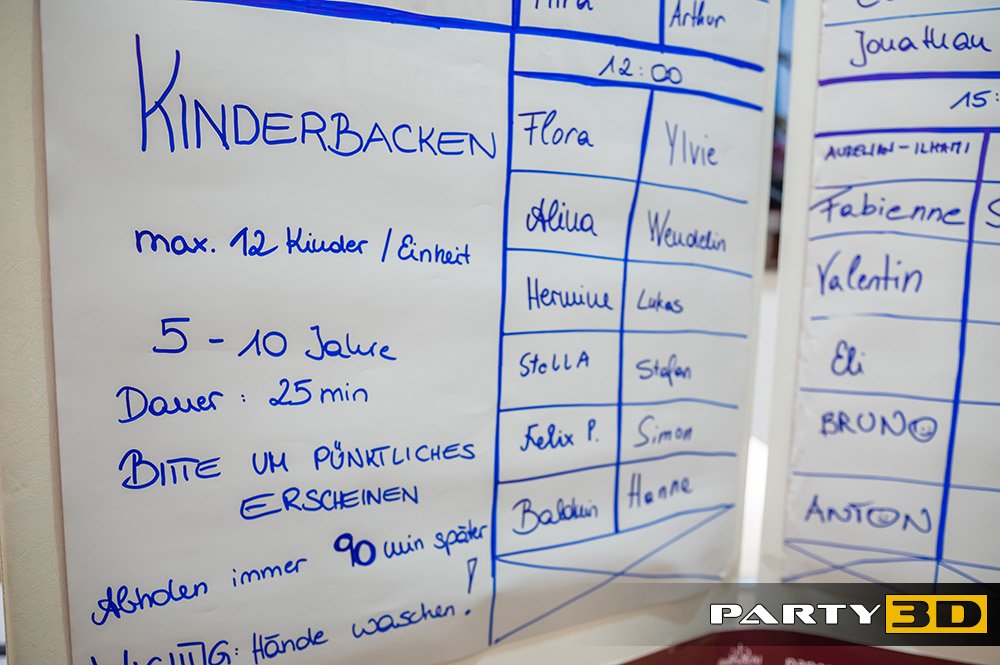 KINDERBACKEN
max. 12 Kinder / Einheit
5 - 10 Jahre
Dauer : 25 min
BITTE UM PÜNKTLICHES
ERSCHEINEN
Abholen immer 90 min später
Hände waschen!
Arthur
12:00
Flora Ylvie
Alina Wendelin
Hermine Lukas
StellA Stefan
Felix P. Simon
Baldwin Hanna
Jonathan
15:
AURELIAN-ILHAMI
Fabienne
Valentin
Eli
BRUNO
ANTON
PARTY 3D